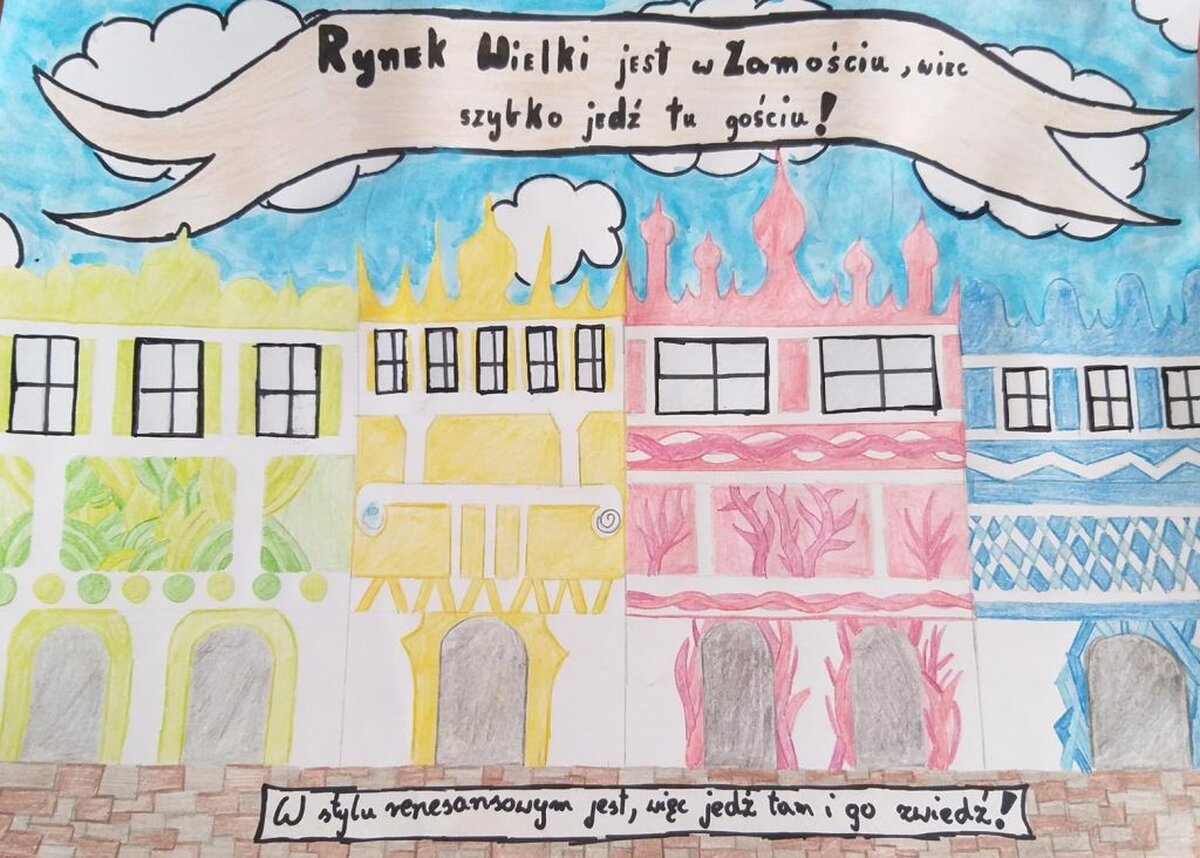 Rynek Wielki jest w Zamościu, więc
szybko jedź tu gościu!
W stylu renesansowym jest, więc jedź tam i go zwiedź!